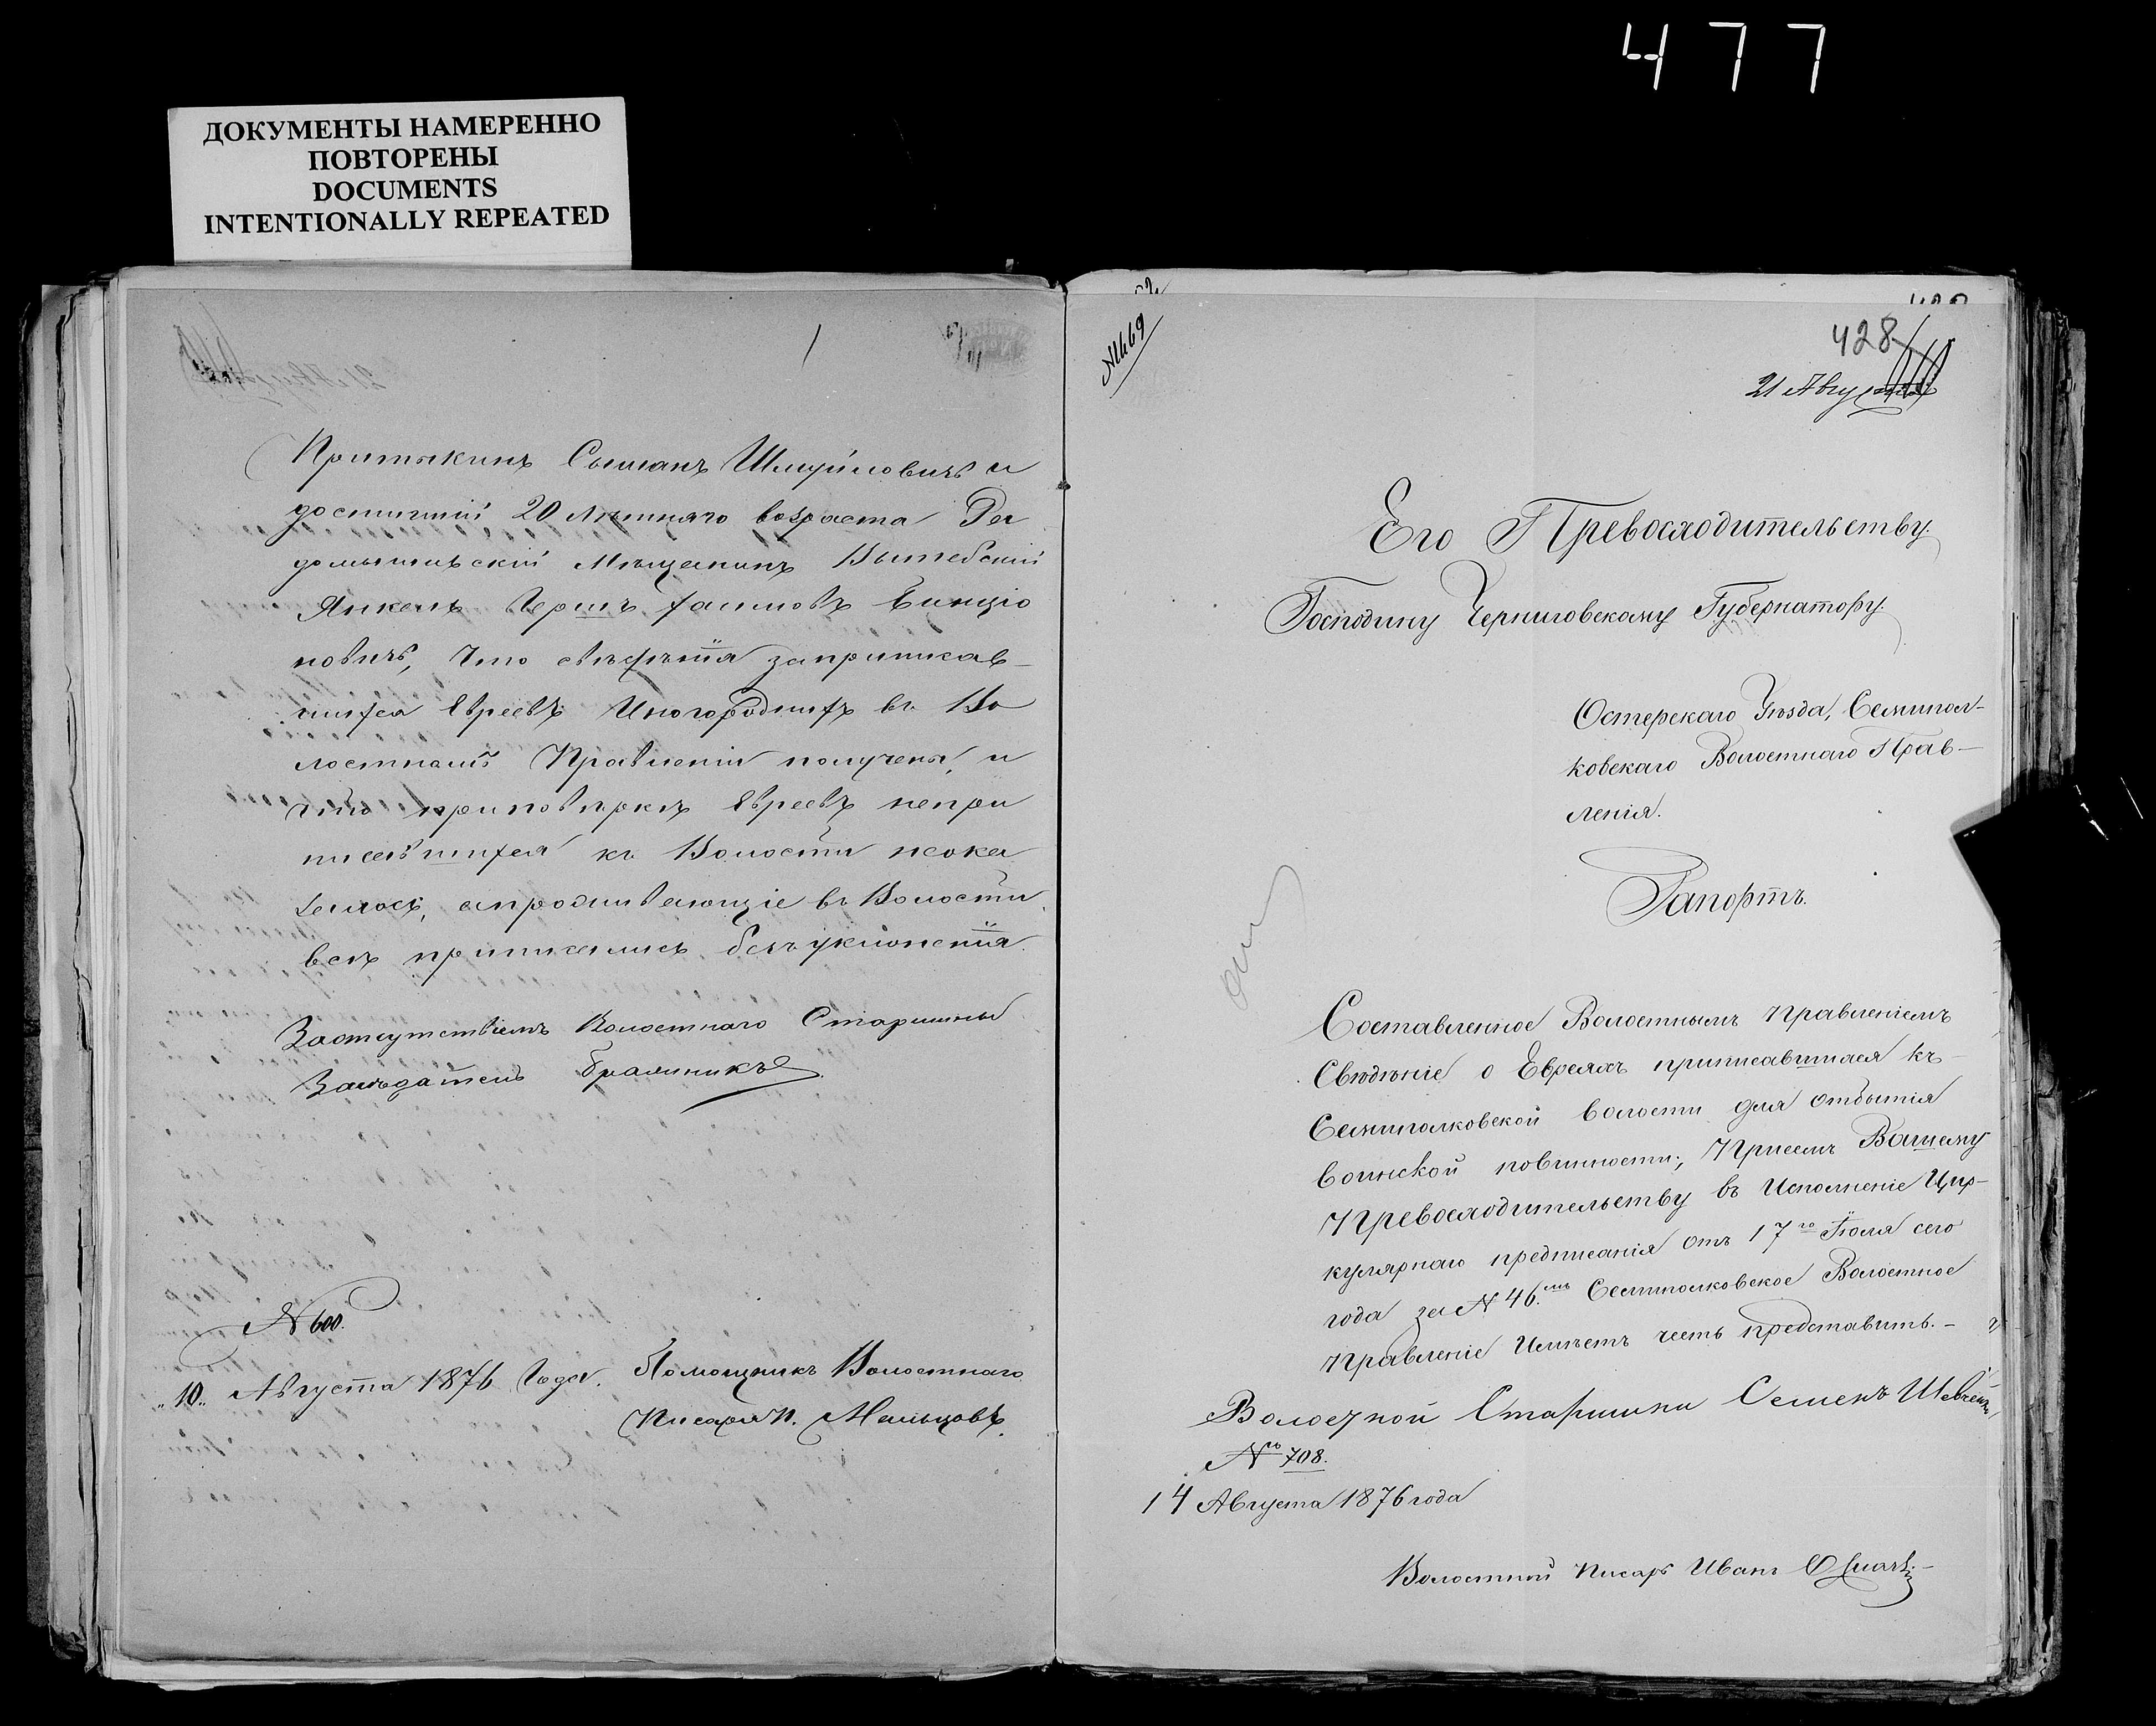 477
ДОКУМЕНТЫ НАМЕРЕННО
ПОВТОРЕНЫ
DOCUMENTS
INTENTIONALLY REPEATED
Притыкинъ Сыманъ Шмуйловичъ и
достигшій 20 лѣтняго возраста Ра
домысльскій Мѣщанинъ Вытебскій
Янкель Гершъ Хаимовъ Бинціо
новичъ, Что свѣденія заприписав-
шихся Евреевъ Иногороднихъ въ Во
лостномъ Правленіи получены, и
что приповѣркѣ Евреевъ непри
писавшихся къ Волости неока
залось, апроживающіе въ Волости
всѣ приписались безъ уклоненія.
Заотсутствіемъ Волостнаго Старшины
Засѣдатель
N 600.
„10„ Августа 1876 Года. Помощникъ Волостнаго
Писаря П. Мальцовъ.
428
21 Августа
Его Превосходительству.
Господину Черниговскому Губернатору.
Остерскаго Уѣзда, Семипол-
ковскаго Волостнаго Прав-
ленія.
Рапортъ.
Составленное Волостнымъ Правленіемъ
Свѣдѣніе о Евреяхъ приписавшихся къ
Семиполковской волости для отбытія
воинской повинности, При семъ Вашему
Превосходительству въ Исполненіе Цир-
кулярнаго предписанія отъ 17го Іюля сего
года за N 46.мъ Семиполковское Волостное
Правленіе Имѣетъ честь представить.-
Волосной Старшина Семенъ Шевченко
№ 708.
14 Августа 1876 года
Волостной Писарь Иванъ